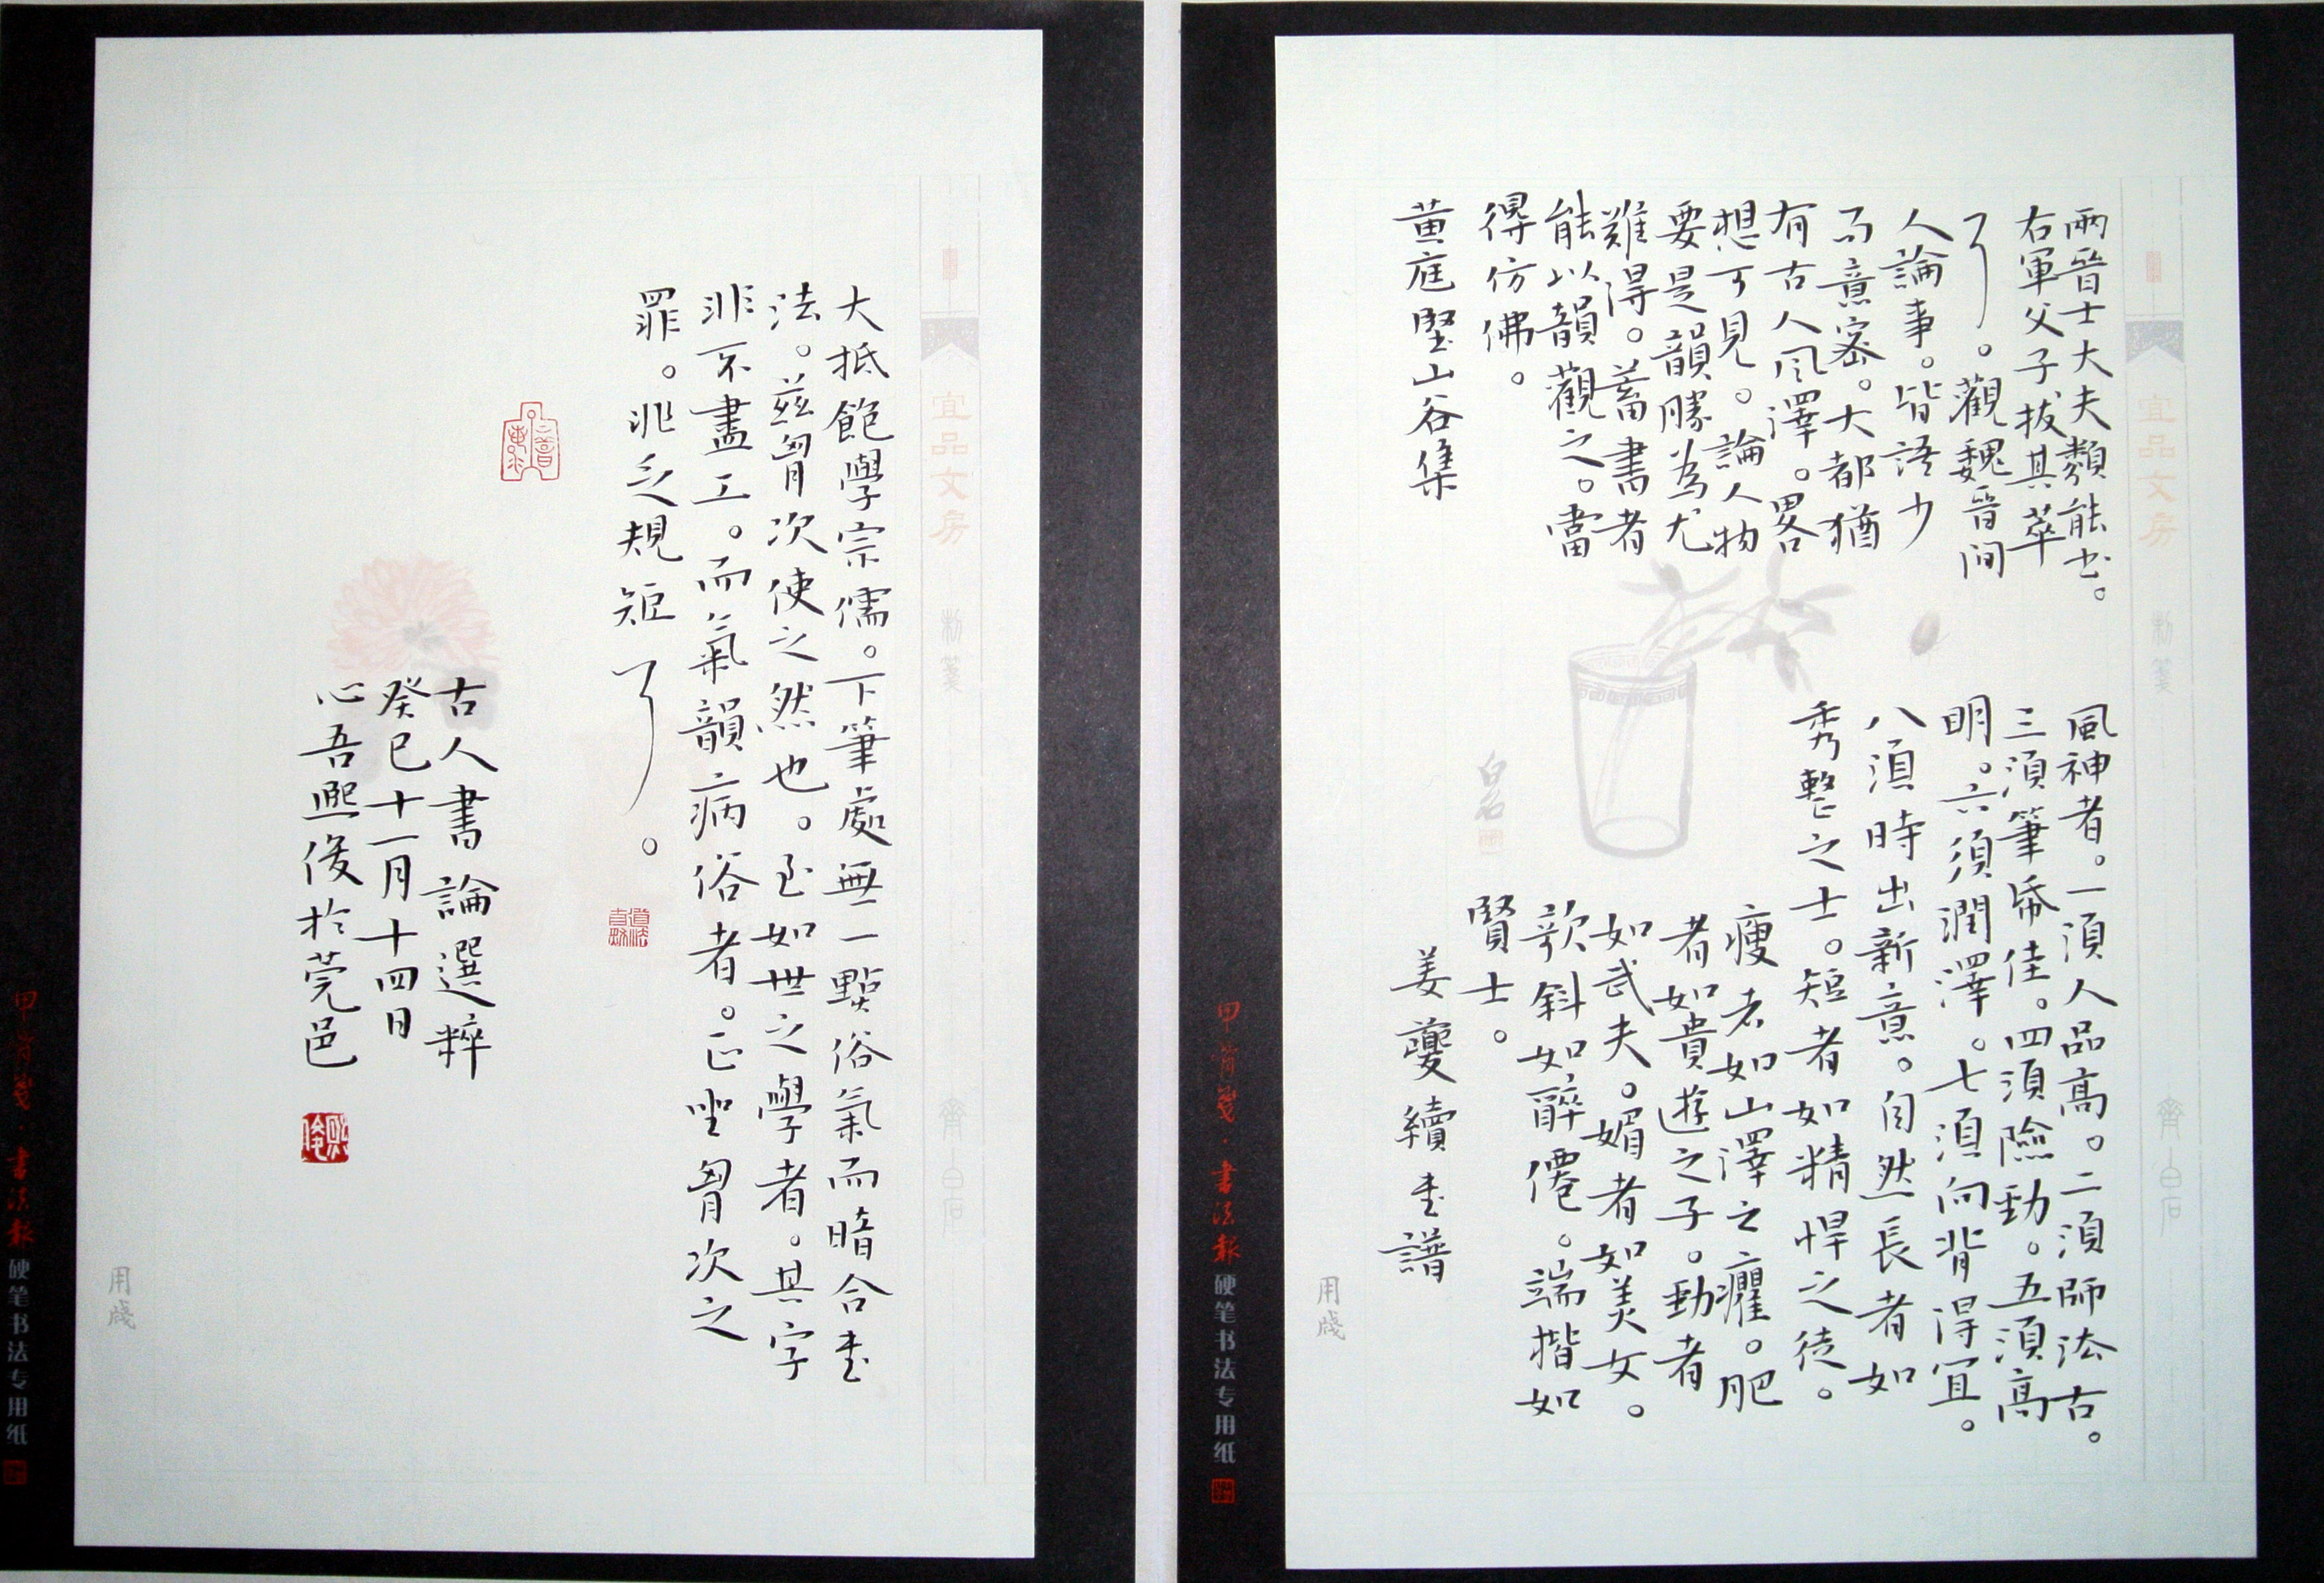 兩晉士大夫類能书。
右軍父子拔其萃
了。觀魏晉间
人論事。皆語少
而意密。大都猶
有古人风澤。畧
想可見。論人物
要是韻勝為尤
難得。蓄書者
能以韻觀之。當
得仿佛。
黄庭堅山谷集
風神者。一須人品高。二須師法古。
三須筆帋佳。四須險勁。五須高
明。六須潤澤。七須向背得宜。
八須時出新意。自然長者如
秀整之士。短者如精悍之徒。
瘦者如山澤之癯。肥
者如貴遊之子。勁者
如武夫。媚者如美女。
欹斜如醉僊。端揩如
賢士。
姜夔續書譜
宜品文房
制箋
齊白石
白石
用牋
甲骨箋·書法報硬笔书法专用纸
大抵飽學宗儒。下筆處無一點俗氣而暗合書
法。兹胷次使之然也。至如世之學者。其字
非不盡工。而氣韻病俗者。正坐胷次之
罪。非乏規矩了。
古人書論選粹
癸巳十一月十四日
心吾熙俊於莞邑
熙俊
宜品文房
制箋
齊白石
用牋
甲骨箋·書法報硬笔书法专用纸